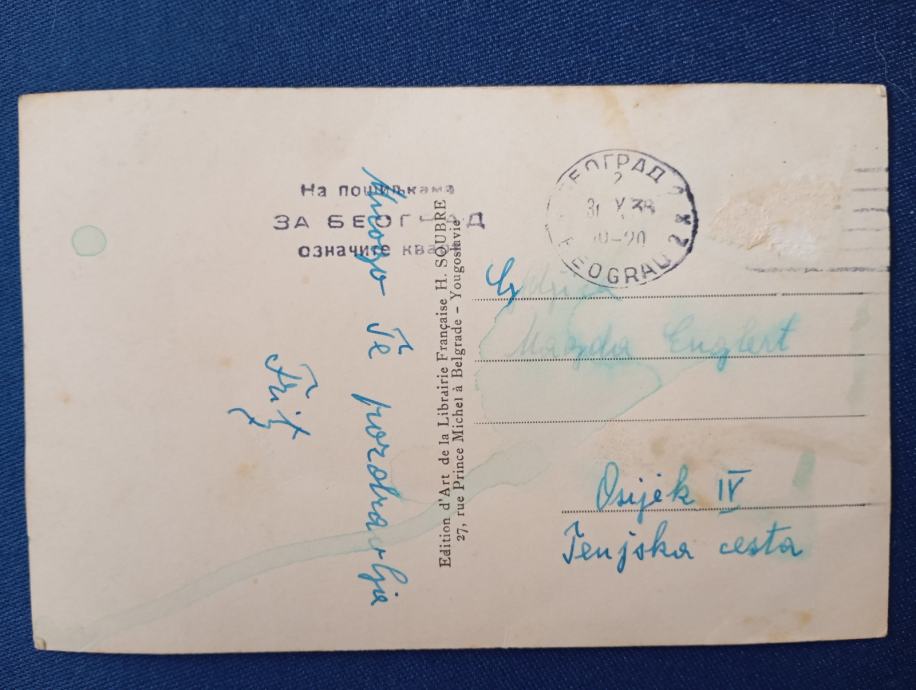 На пошиљкама
ЗА БЕОГРАД
означите кварт
БЕОГРАД
2
31 X 38
10-20
BEOGRAD 2
Mnogo Te pozdravlja
Fritz
Edition d'Art de la Librairie Française H. SOUBRE
27, rue Prince Michel à Belgrade – Yougoslavie
Magda Englert
Osijek IV
Tenjska cesta